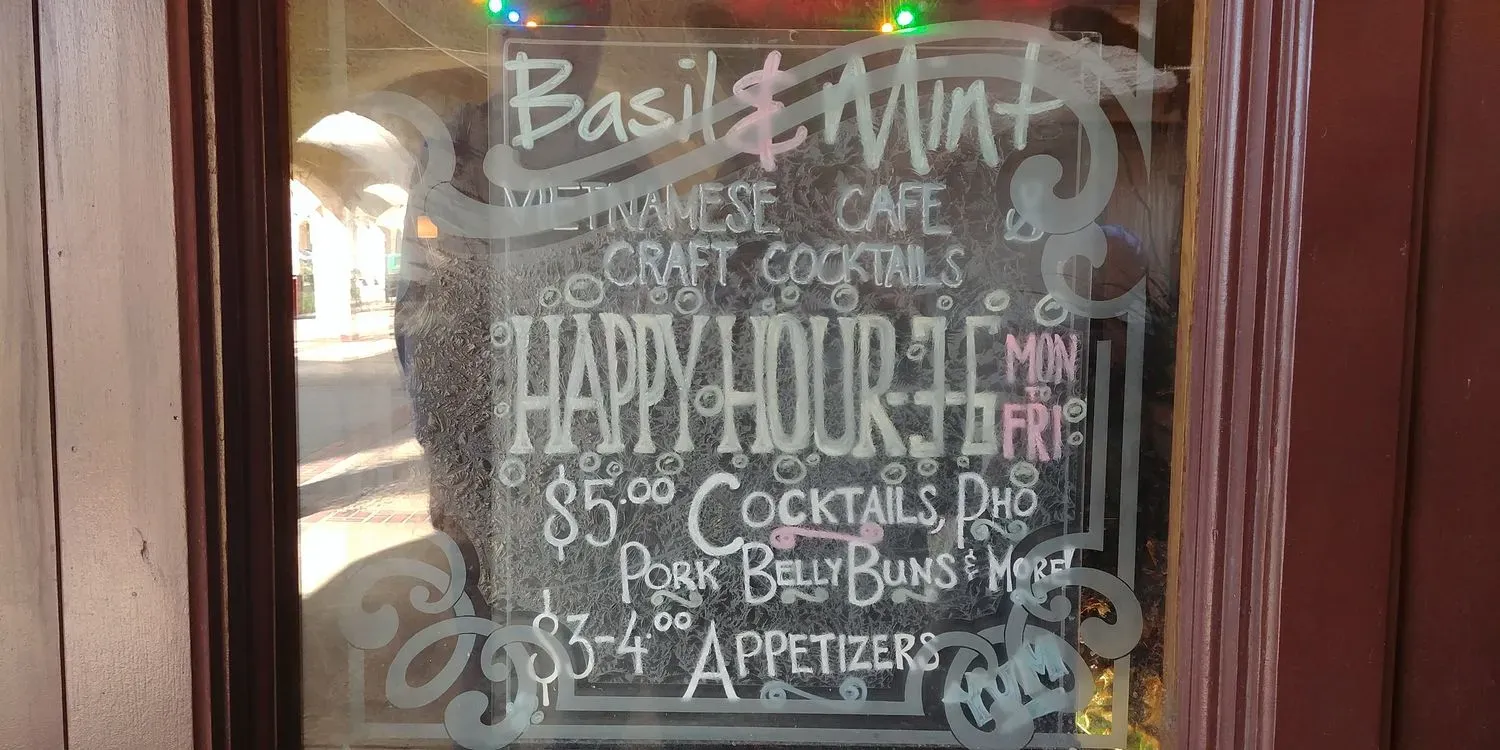 Basil & Mint
VIETNAMESE CAFE &
CRAFT COCKTAILS
HAPPY HOUR-3-6 MON TO FRI
$5.00 COCKTAILS, PHO
PORK BELLY BUNS & MORE!
$3-4.00 APPETIZERS
YUM